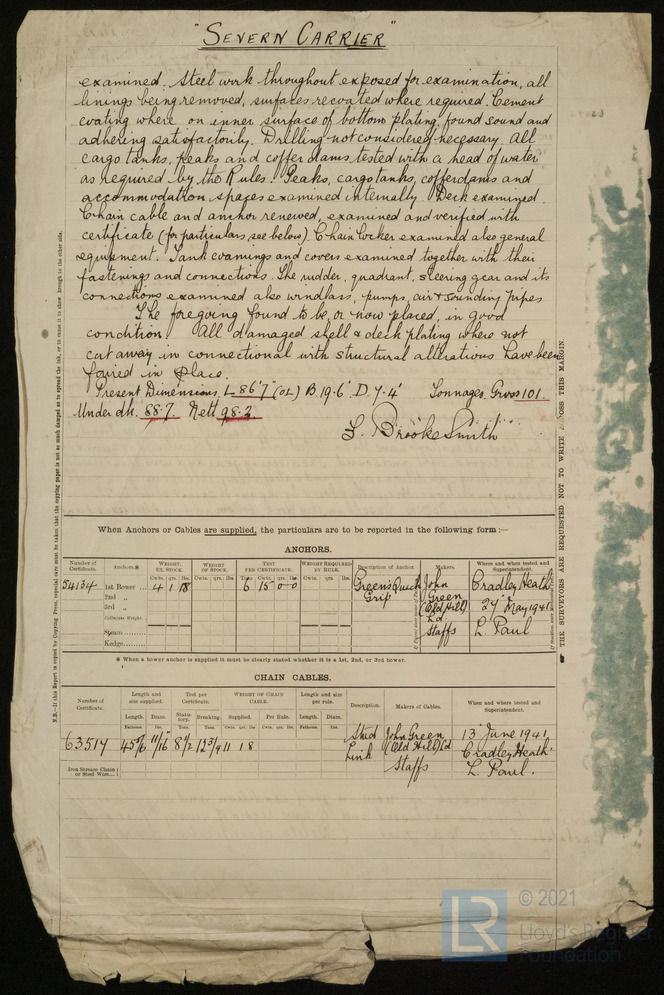 "SEVERN CARRIER"
examined. Steel work throughout exposed for examination, all
linings being removed, surfaces recoated where required. Cement
coating where on inner surface of bottom plating found sound and
adhering satisfactorily. Drilling not considered necessary. All
cargo tanks, peaks and cofferdams tested with a head of water
as required by the Rules. Peaks, cargo tanks, cofferdams and
accommodation spaces examined internally. Deck examined.
Chain cable and anchor renewed, examined and verified with
certificate (for particulars see below). Chain locker examined also general
equipment. Tank coamings and covers examined together with their
fastenings and connections. The rudder, quadrant, steering gear and its
connections examined also windlass, pumps, air & sounding pipes
The foregoing found to be, or now placed, in good
condition. All damaged shell & deck plating where not
cut away in connectional with structural alterations have been
faired in place.
Present Dimensions. L 86'7" (OL) B. 19.6' D. 7.4' Tonnages. Gross 101.
Under dk. 88.7. Nett 98.2
L. Brooke Smith
When Anchors or Cables are supplied, the particulars are to be reported in the following form:—
ANCHORS.
Number of Certificate. Anchors.* WEIGHT, EX. STOCK. WEIGHT OF STOCK. TEST PER CERTIFICATE. WEIGHT REQUIRED BY RULE. Description of Anchor. Makers. Where and when tested and Superintendent.
Cwts. qrs. lbs. Cwts. qrs. lbs. Tons Cwts. qrs. lbs. Cwts. qrs. lbs.
54134 1st Bower 4 1 18 6 15 0 0 Green's Quick Grip John Green (Old Hill) Ld Staffs Cradley Heath 27 May 1941 L. Paul
2nd "
3rd "
Collective Weight.
Stream
Kedge
* When a bower anchor is supplied it must be clearly stated whether it is a 1st, 2nd, or 3rd bower.
CHAIN CABLES.
Number of Certificate. Length and size supplied. Test per Certificate. WEIGHT OF CHAIN CABLE. Length and size per rule. Description. Makers of Cables. When and where tested and Superintendent.
Length. Diam. Statutory. Breaking. Supplied. Per Rule. Length. Diam.
Fathoms Ins. Tons. Tons. Cwts. qrs. lbs. Cwts. qrs. lbs. Fathoms Ins.
63517 45 5/6 11/16 8 1/2 12 3/4 11 1 8 Stud Link John Green (Old Hill) Ld Staffs 13 June 1941 Cradley Heath L. Paul.
Iron Stream Chain or Steel Wire
THE SURVEYORS ARE REQUESTED NOT TO WRITE ACROSS THIS MARGIN.
LR
© 2021
Lloyd's Register
Foundation